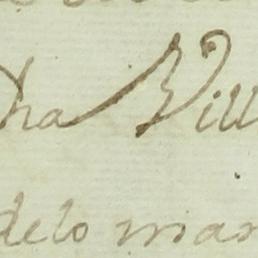 dha Vill
delo man